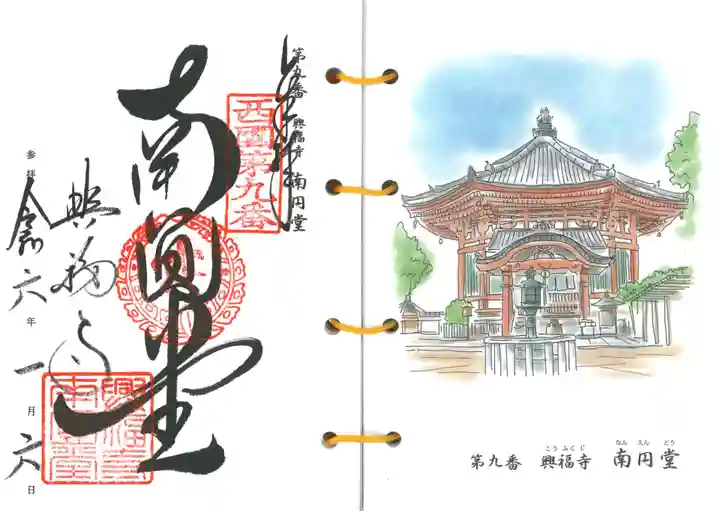 第九番 興福寺 南円堂
西国第九番
南圓堂
興福寺
参拝 令六年一月六日
こうふくじ なんえんどう
第九番 興福寺 南円堂